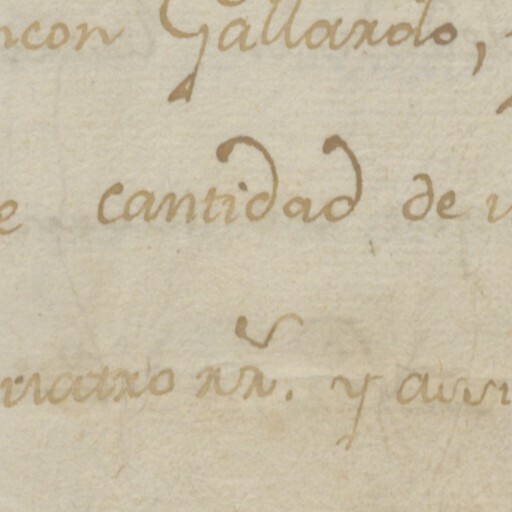 ncon Gallardo,
e cantidad de
uatro rr. y assi